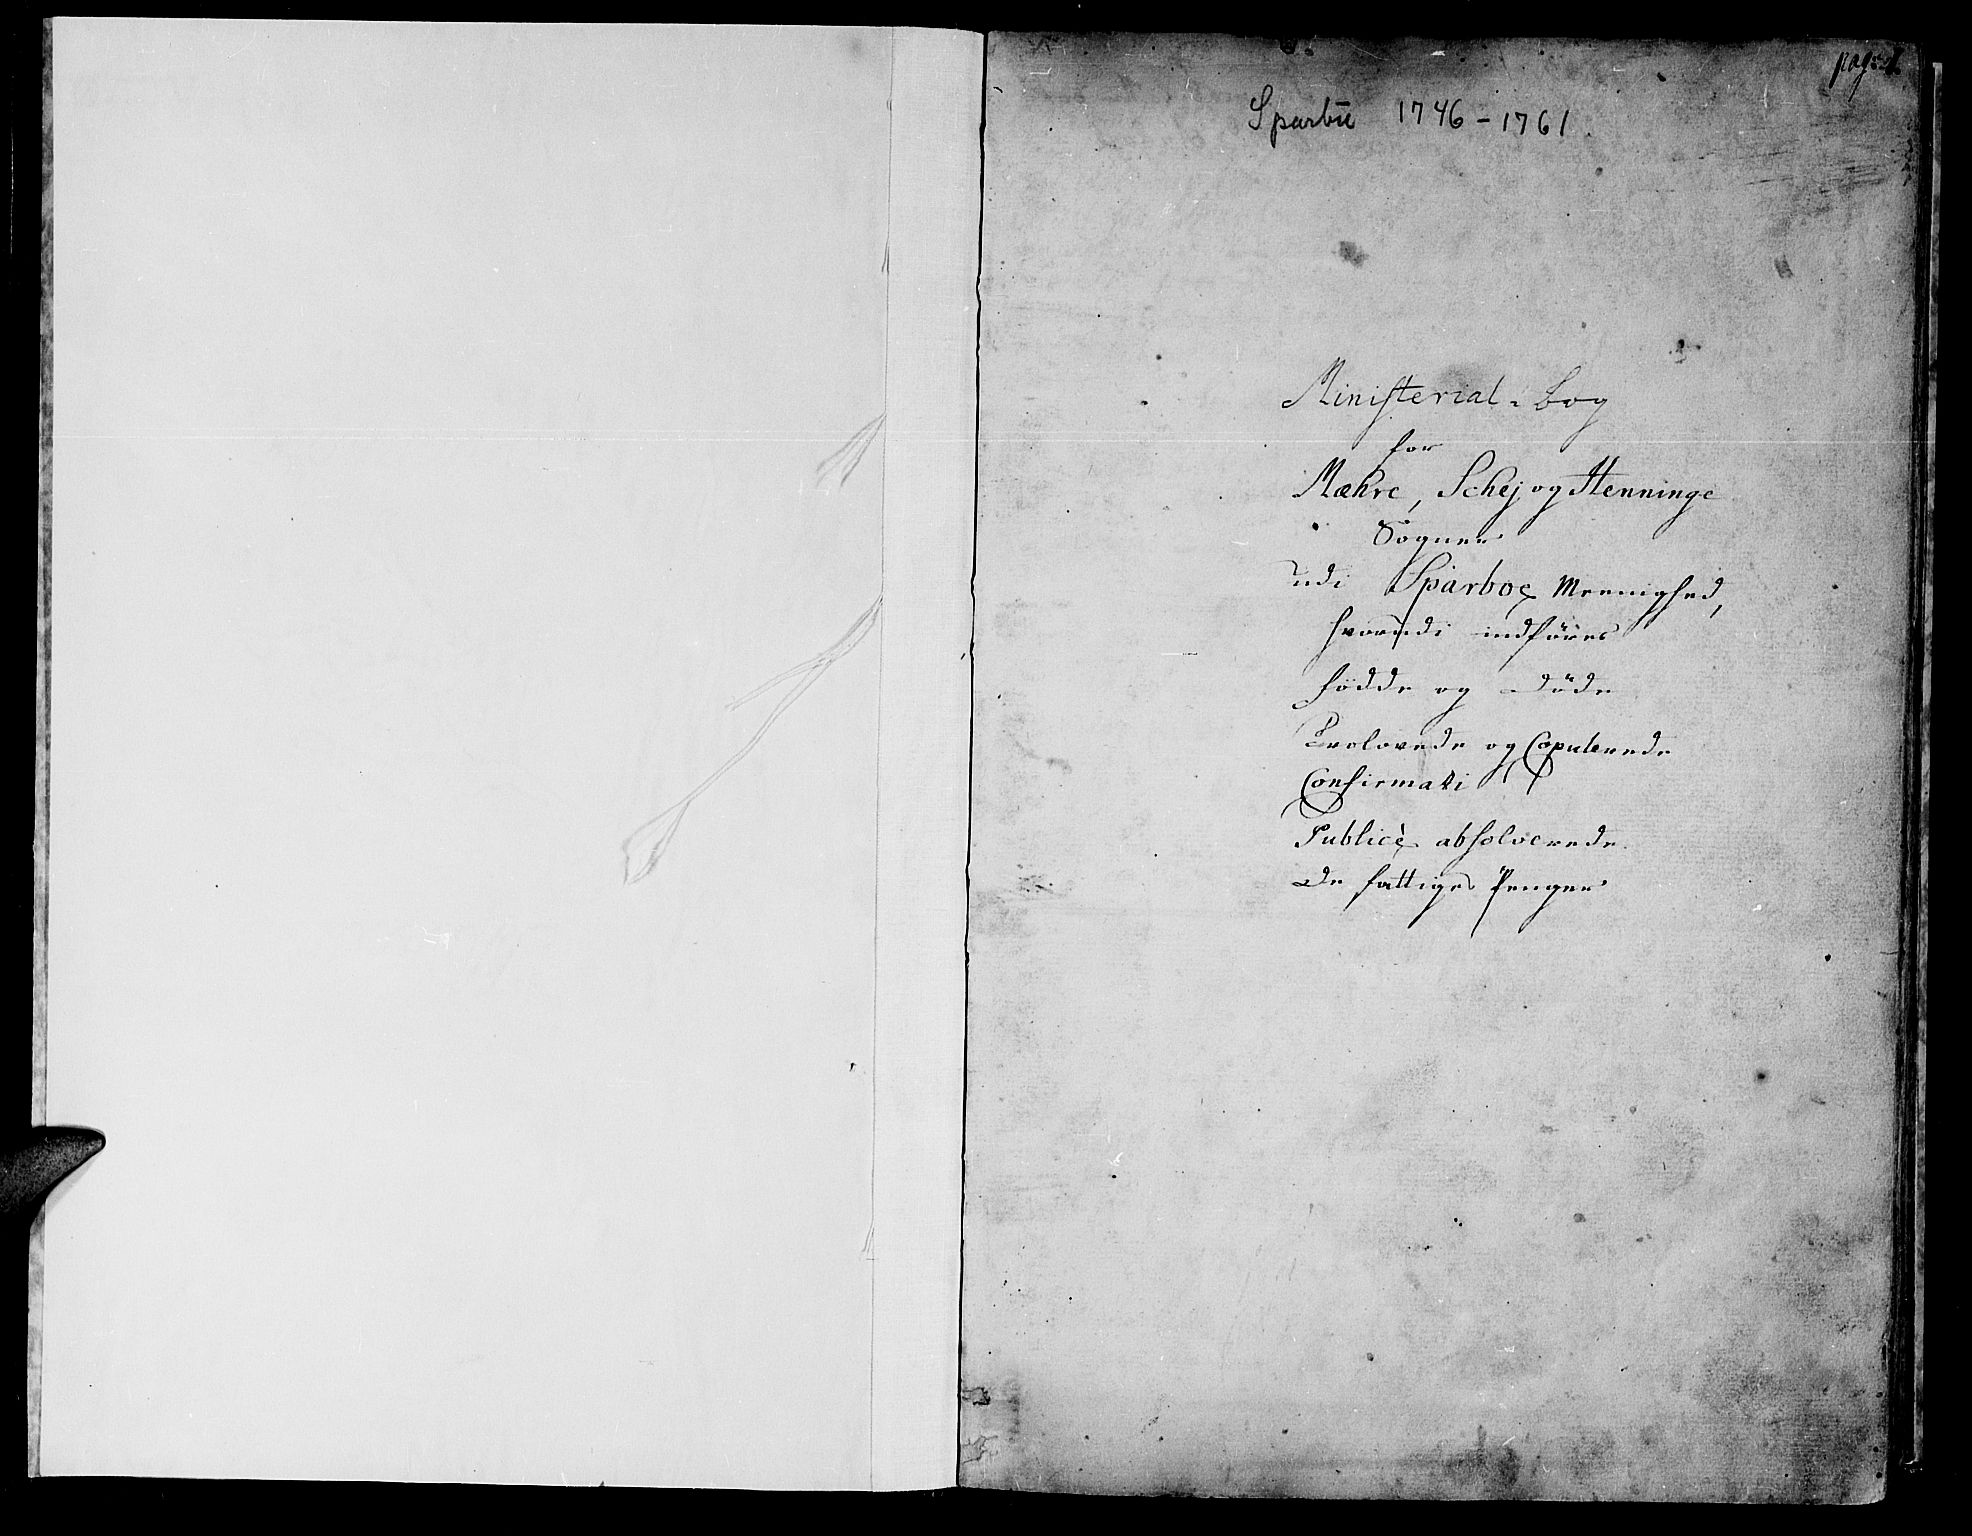 pag: 1.
Sparbu 1746-1761.
Ministerial-Bog
for
Mæhre, Schej og Henninge
Sogner
udi Sparboe Meenighed,
hvorudi indføres
fødde og døde
Trolovede og Copulerede
Confirmati
Publicè absolverede
De fattiges Penger